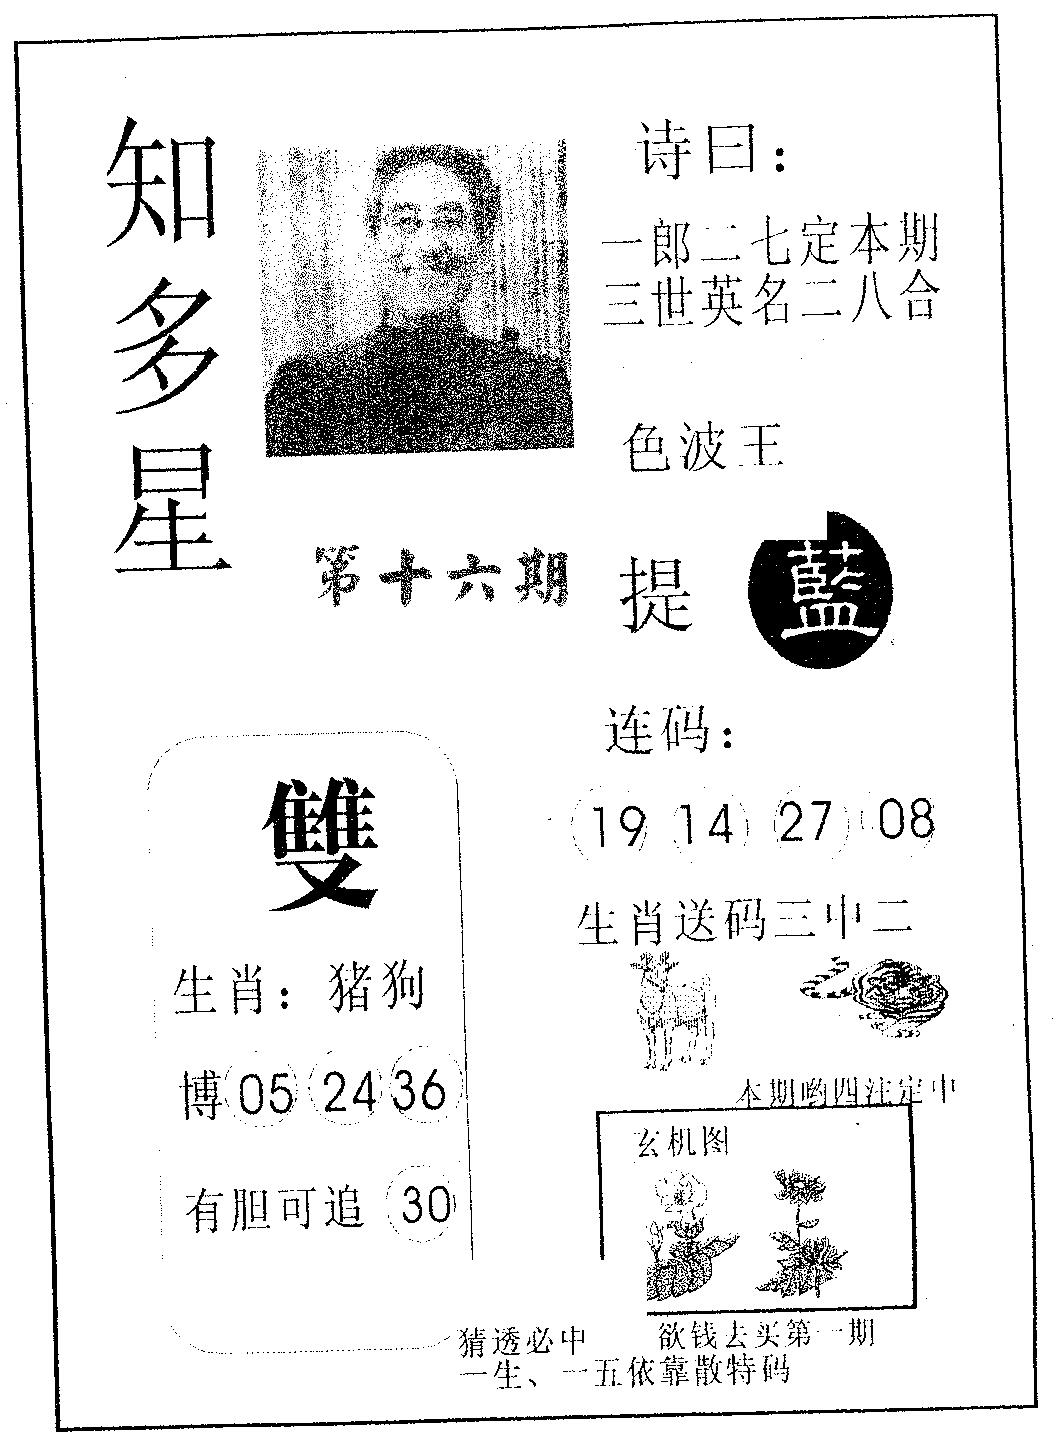 知多星
诗曰：
一郎二七定本期
三世英名二八合
色波王
第十六期
提 藍
连码：
19 14 27 08
雙
生肖：猪狗
博 05 24 36
有胆可追 30
生肖送码三中二
本期哟四注定中
玄机图
猜透必中
欲钱去买第一期
一生、一五依靠散特码